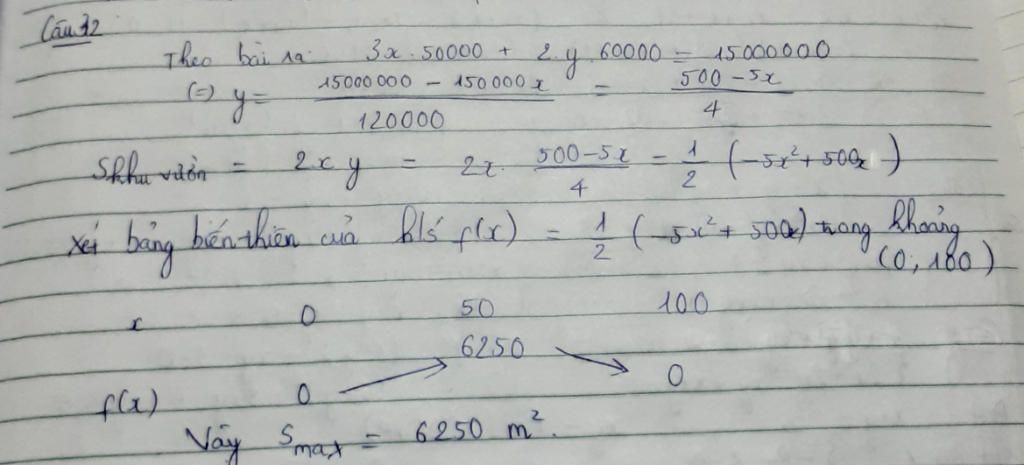 Câu 32
Theo bài ra: 3x . 50000 + 2 . y . 60000 = 15000000
(=) y = (15000000 - 150000x)/120000 = (500 - 5x)/4
Skhu vườn = 2xy = 2x . (500 - 5x)/4 = 1/2 (-5x² + 500x)
Xét bảng biến thiên của h/s f(x) = 1/2 (-5x² + 500x) trong khoảng
(0, 100)
x 0 50 100
6250
f(x) 0 0
Vây Smax = 6250 m².